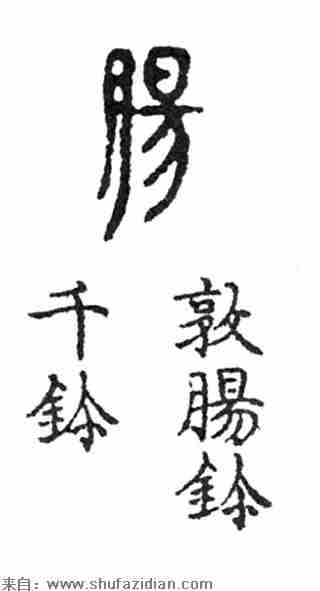 腸
敦腸鉨
千鉨
来自：www.shufazidian.com